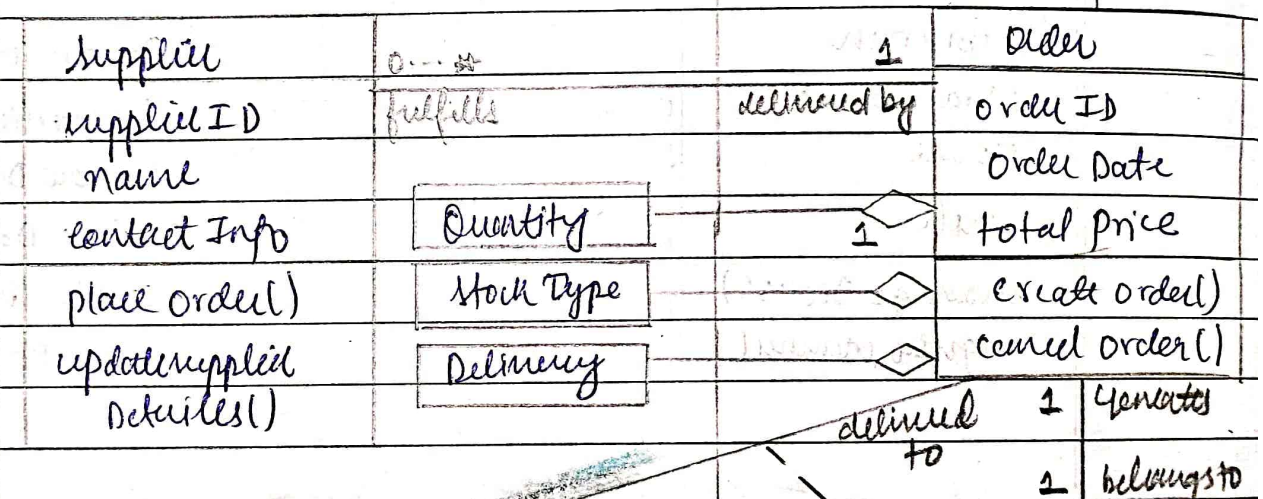 Supplier
supplier ID
name
contact Info
place order()
update supplier
Details()
0...*
1
fulfills
delivered by
Quantity
1
Stock Type
Delivery
Order
order ID
Order Date
total price
create order()
cancel order()
delivered
to
1
generates
1
belongs to